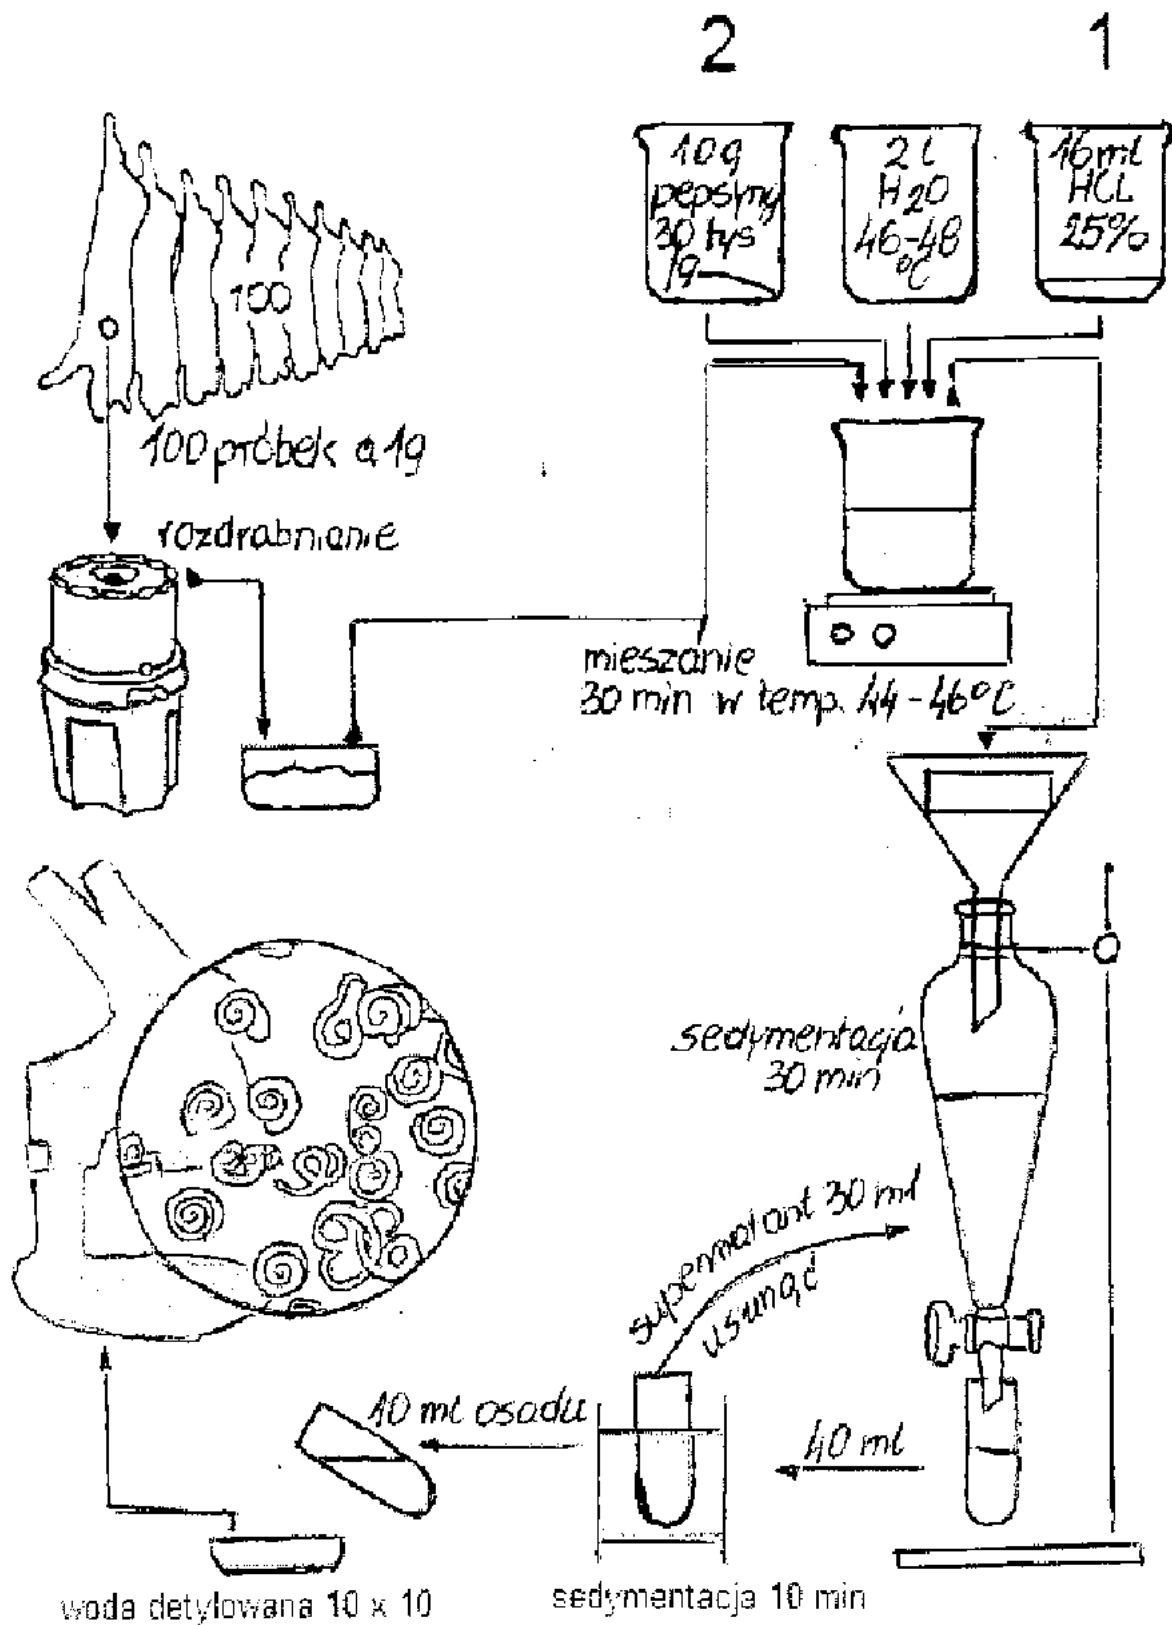 2
1
10g
pepsyny
30 tys
/g
2l
H2O
46-48
°C
16ml
HCL
25%
100
100 próbek a 1g
rozdrabnianie
mieszanie
30 min w temp. 44-46°C
sedymentacja
30 min
supernatant 30 ml
usunąć
10 ml osadu
40 ml
woda detylowana 10 x 10
sedymentacja 10 min